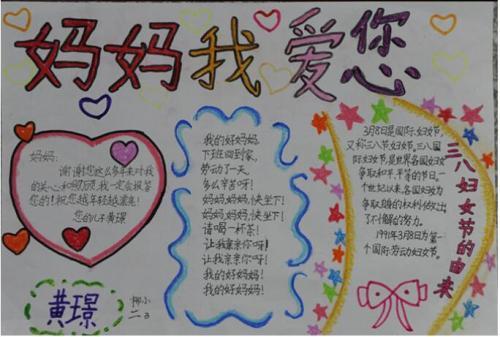 妈妈我爱您
妈妈:
谢谢您这么多年来对我
的关心和照顾,我一定会报答
您的!祝您越年轻越漂亮!
您的儿子黄璟
黄璟
柳小
二3
我的好妈妈,
下班回到家,
劳动了一天,
多么辛苦呀!
妈妈,妈妈,快坐下!
妈妈,妈妈,快坐下!
请喝一杯茶!
让我亲亲你呀!
让我亲亲你呀!
我的好妈妈!
我的好妈妈!
3月8日是国际妇女节,
又称三八节妇女节,三八国
际妇女节,是世界各国妇女
争取和平,平等的节日,一
个世纪以来,各国妇女为
争取自己的权利作出
了不懈的努力。
国际劳动妇女节。
三八妇女节的由来